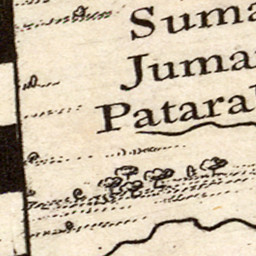 Suma
Juma
Patara